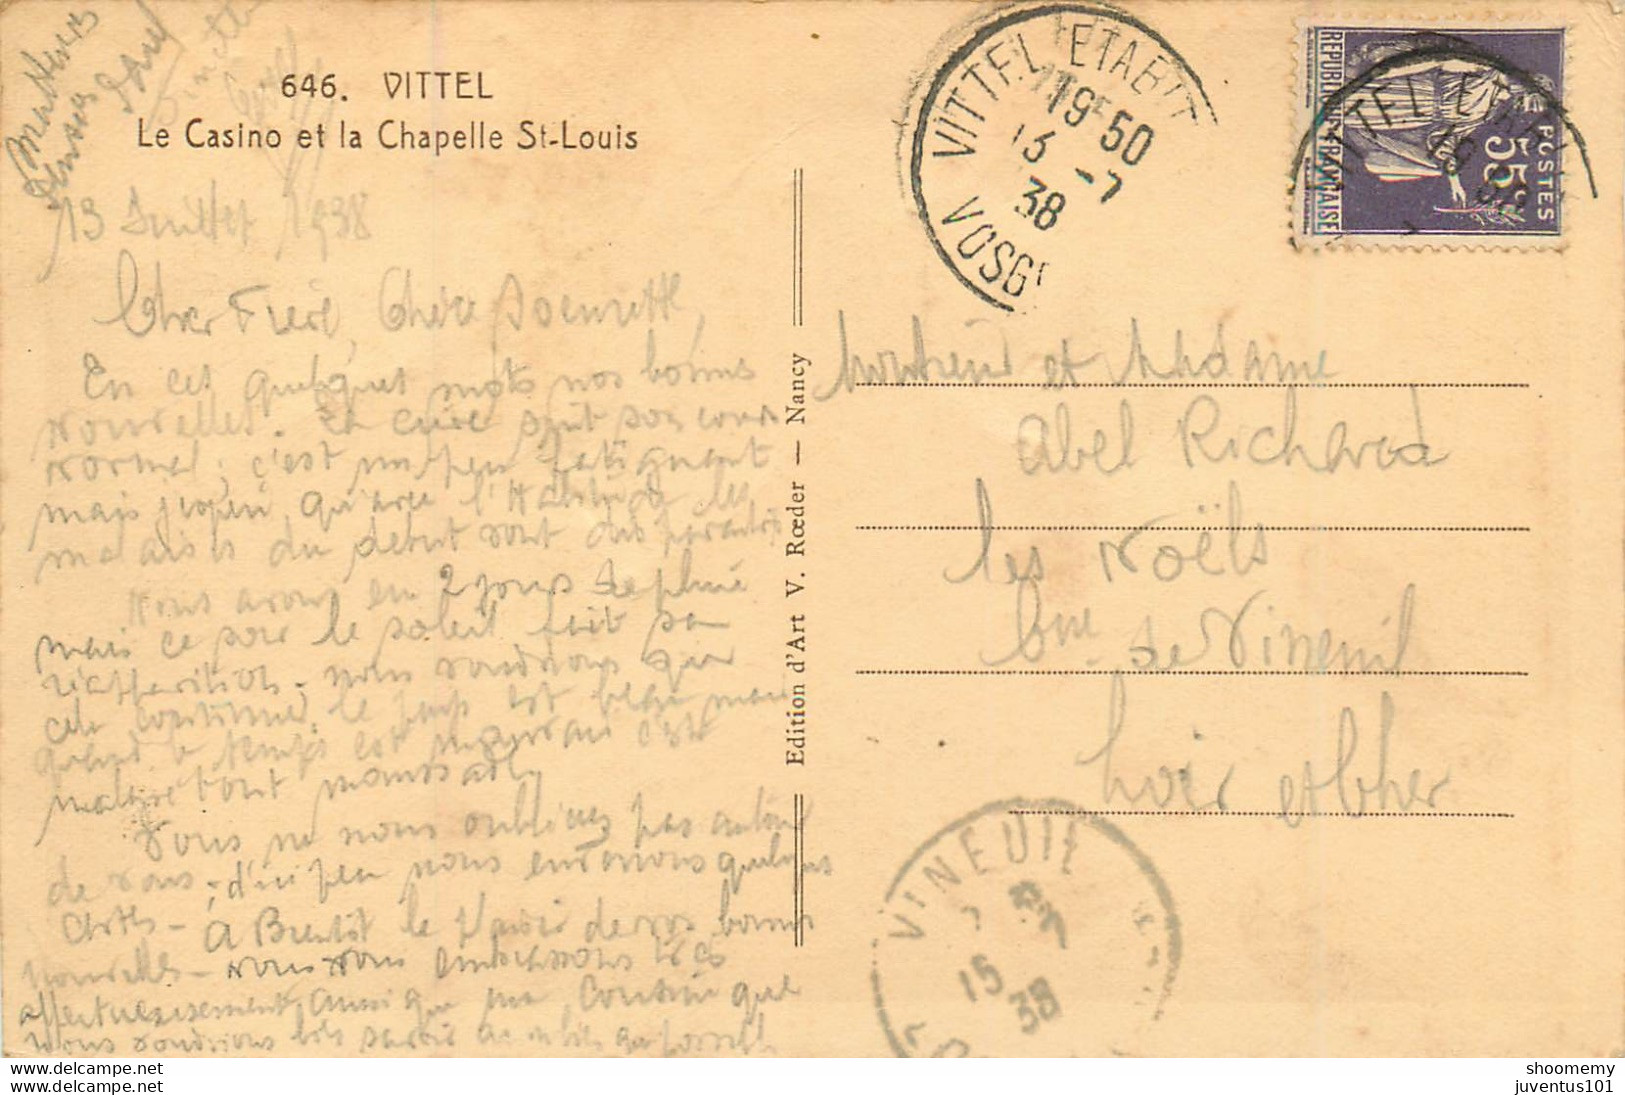 646. VITTEL
Le Casino et la Chapelle St-Louis
13 Juillet 1938
Cher Frère, Chère
En ces quelques mots nos bonnes
nouvelles. La cure suit son cours
normal; c'est un peu fatiguant
mais j'espère qu'avec l'Habitude les
malaises du début vont
Nous avons eu 2 jours de pluie
mais ce soir le soleil fait sa
réapparition, nous voudrions que
cela continue, le pays est beau mais
quand le temps est mauvais c'est
malgré tout maussade.
Nous ne nous oublions pas autour
de vous, d'ici peu nous enverrons quelques
cartes - à Bientôt le plaisir de vos bonnes
nouvelles - nous vous embrassons très
affectueusement, aussi que ma Cousine que
nous voudrions bien savoir
Edition d'Art V. Rœder — Nancy
VITTEL ETABLT
19 50
13 -7
38
VOSG
REPUBLIQUE FRANÇAISE
POSTES
55c
VITTEL ETABL
Monsieur et Madame
Abel Richard
les Noëls
Cne de Vineuil
Loir et Cher
VINEUIL
15
38
www.delcampe.net
shoomemy
juventus101